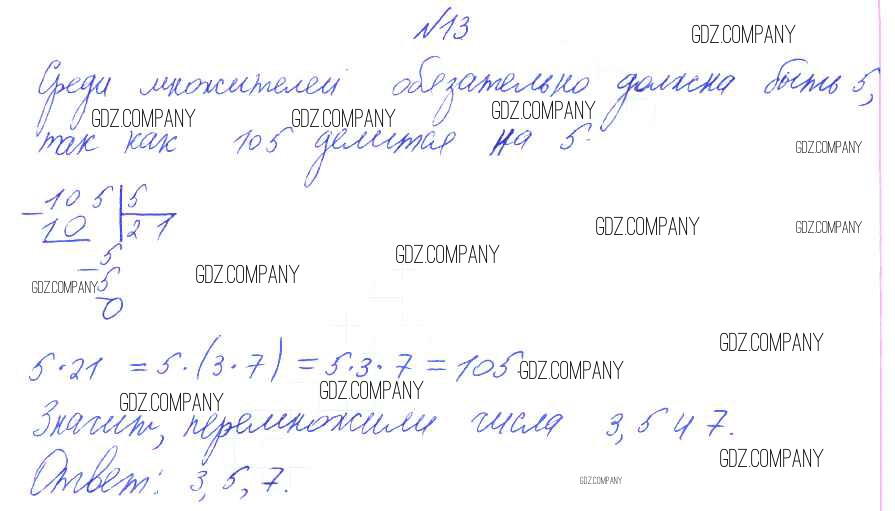 №13
GDZ.COMPANY
Среди множителей обязательно должна быть 5,
GDZ.COMPANY GDZ.COMPANY GDZ.COMPANY
так как 105 делится на 5.
GDZ.COMPANY
105 5
10 21
GDZ.COMPANY GDZ.COMPANY
5
GDZ.COMPANY
GDZ.COMPANY 5 GDZ.COMPANY
0
5·21 = 5·(3·7) = 5·3·7 = 105
GDZ.COMPANY GDZ.COMPANY
GDZ.COMPANY GDZ.COMPANY
Значит, перемножили числа 3, 5 и 7.
GDZ.COMPANY
Ответ: 3, 5, 7.
GDZ.COMPANY